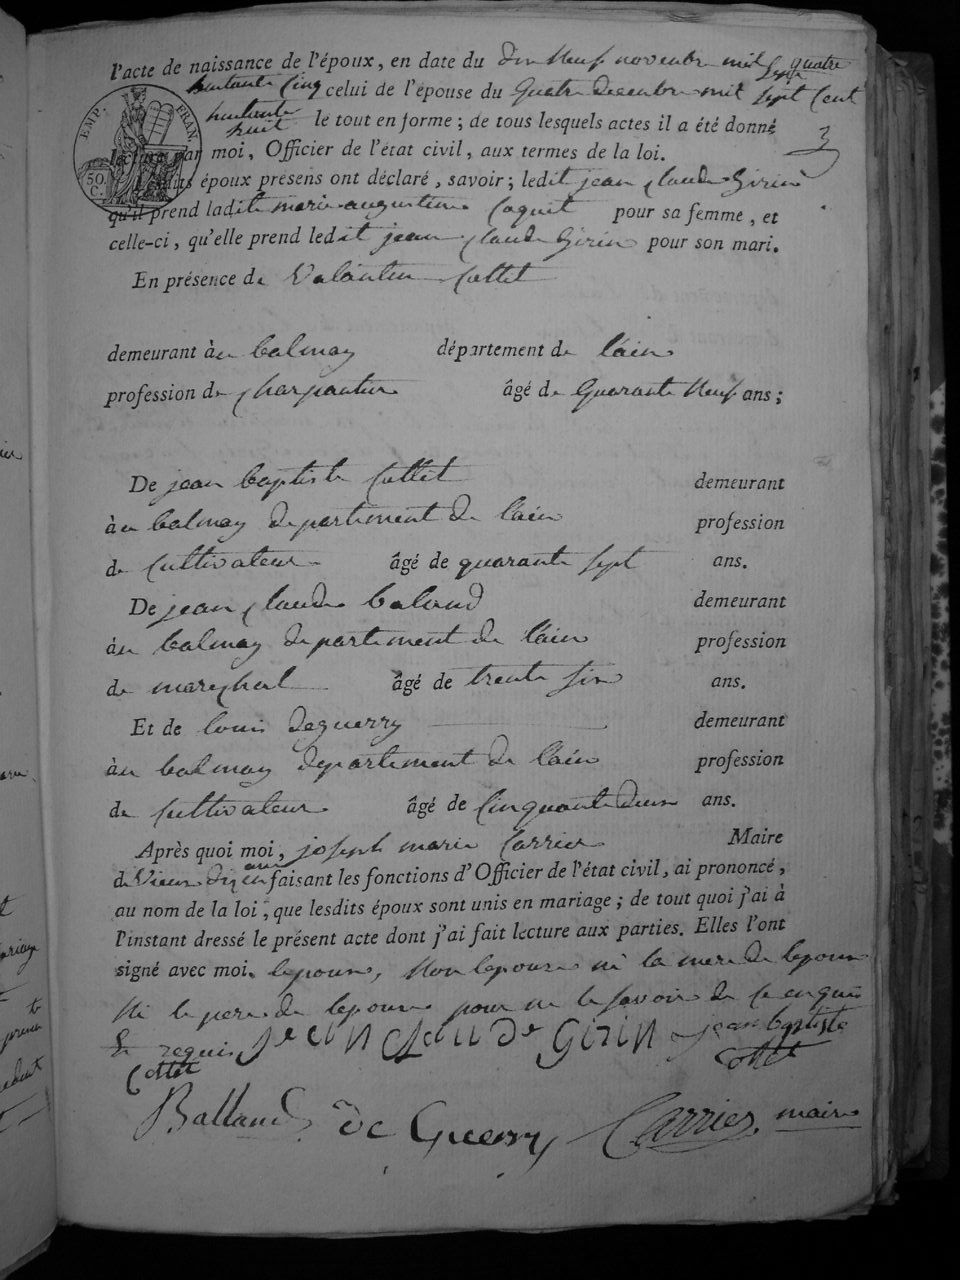 l'acte de naissance de l'époux, en date du dix Neuf novembre mil sept quatre
huitante Cinq celui de l'épouse du Quatre decembre mil sept Cent
huitante
huit le tout en forme ; de tous lesquels actes il a été donné
EMP. FRAN.
50. C.
3
lecture par moi, Officier de l'état civil, aux termes de la loi.
Lesdits époux présens ont déclaré, savoir ; ledit jean Claude Girin
qu'il prend ladite marie augustine Coquet pour sa femme, et
celle-ci, qu'elle prend ledit jean Claude Girin pour son mari.
En présence de Valantin Collet
demeurant à au balmay département de l'ain
profession de Charpantier âgé de Quarante Neuf ans ;
De jean baptiste Collet demeurant
à au balmay departement de l'ain profession
de Cultivateur âgé de quarante sept ans.
De jean Claude baland demeurant
à au balmay departement de l'ain profession
de marechal âgé de trente six ans.
Et de louis deguerry demeurant
à au balmay departement de l'ain profession
de Cultivateur âgé de Cinquante deux ans.
Après quoi moi, joseph marie Carrier Maire
de Vieux faisant les fonctions d'Officier de l'état civil, ai prononcé,
au nom de la loi, que lesdits époux sont unis en mariage ; de tout quoi j'ai à
l'instant dressé le présent acte dont j'ai fait lecture aux parties. Elles l'ont
signé avec moi. lepoux, Non lepouse ni la mere de lepoux
Ni le pere de lepouse pour ne le savoir de ce enquis
Et requis jean Claude Girin jean baptiste
Collet Collet
Balland De Guerry Carrier maire